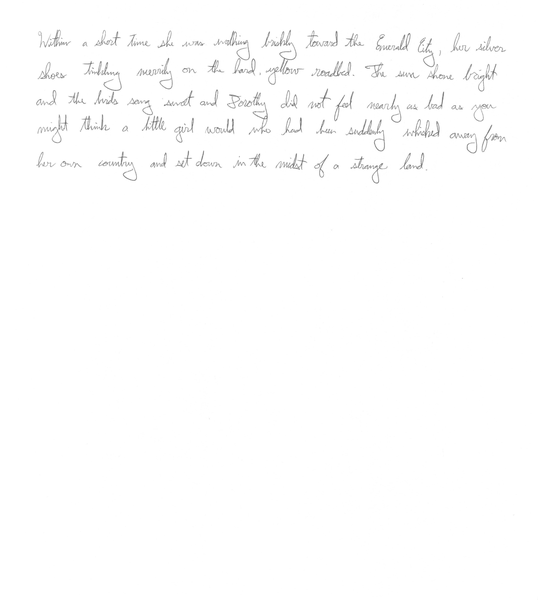 Within a short time she was walking briskly toward the Emerald City, her silver
shoes tinkling merrily on the hard, yellow roadbed. The sun shone bright
and the birds sang sweet and Dorothy did not feel nearly as bad as you
might think a little girl would who had been suddenly whisked away from
her own country and set down in the midst of a strange land.